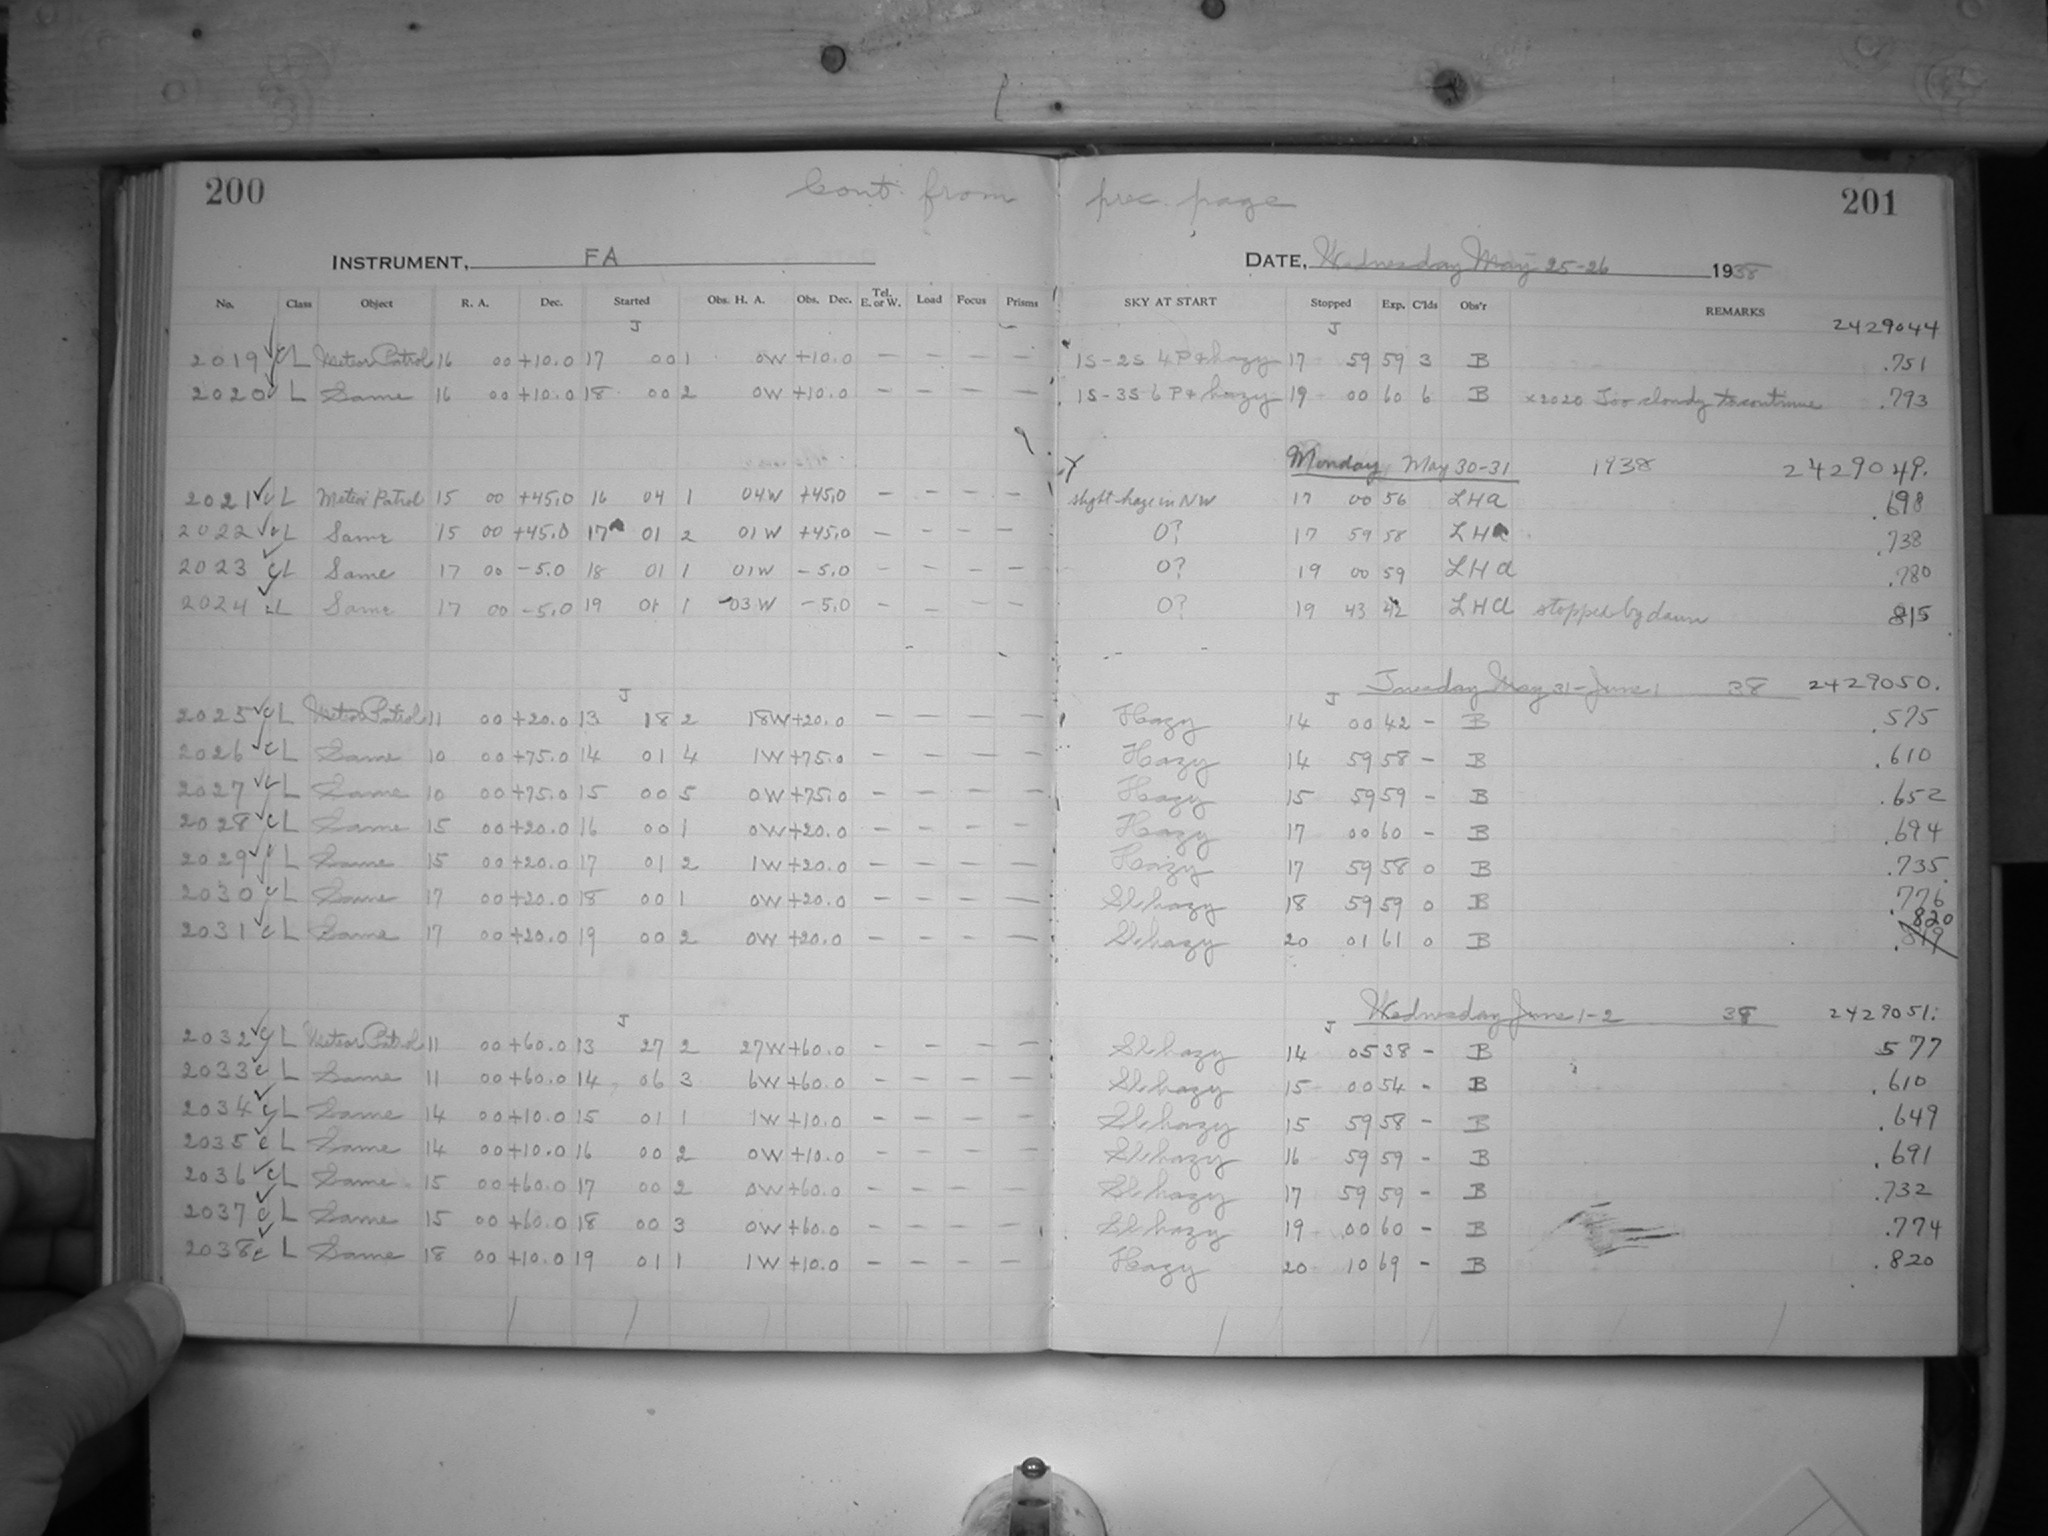 200 Cont. from prec. page 201
INSTRUMENT, FA DATE, Wednesday May 25-26 1938
No. Class Object R. A. Dec. Started Obs. H. A. Obs. Dec. Tel. E. or W. Load Focus Prisms SKY AT START Stopped Exp. C'lds Obs'r REMARKS
J J 2429044
2019 L Meteor Patrol 16 00 +10.0 17 00 1 0W +10.0 — — — — 1S-2S 4 P+ hazy 17 59 59 3 B .751
2020 L Same 16 00 +10.0 18 00 2 0W +10.0 — — — — 1S-3S 6 P+ hazy 19 00 60 6 B x2020 Too cloudy to continue .793
Monday May 30-31 1938 2429049.
2021 L Meteor Patrol 15 00 +45.0 16 04 1 04W +45.0 — — — — slight haze in NW 17 00 56 LHA .698
2022 L Same 15 00 +45.0 17 01 2 01W +45.0 — — — — 0? 17 59 58 LHA .738
2023 L Same 17 00 -5.0 18 01 1 01W -5.0 — — — — 0? 19 00 59 LHA .780
2024 L Same 17 00 -5.0 19 01 1 03W -5.0 — — — — 0? 19 43 42 LHA stopped by dawn 815
J J Tuesday May 31-June 1 38 2429050.
2025 c L Meteor Patrol 11 00 +20.0 13 18 2 18W +20.0 — — — — Hazy 14 00 42 – B .575
2026 c L Same 10 00 +75.0 14 01 4 1W +75.0 — — — — Hazy 14 59 58 – B .610
2027 c L Same 10 00 +75.0 15 00 5 0W +75.0 — — — — Hazy 15 59 59 – B .652
2028 c L Same 15 00 +20.0 16 00 1 0W +20.0 — — — — Hazy 17 00 60 – B .694
2029 L Same 15 00 +20.0 17 01 2 1W +20.0 — — — — Hazy 17 59 58 0 B .735
2030 c L Same 17 00 +20.0 18 00 1 0W +20.0 — — — — Sl. hazy 18 59 59 0 B .776
820
2031 c L Same 17 00 +20.0 19 00 2 0W +20.0 — — — — Sl. hazy 20 01 61 0 B .819
J J Wednesday June 1-2 38 2429051.
2032 c L Meteor Patrol 11 00 +60.0 13 27 2 27W +60.0 — — — — Sl. hazy 14 05 38 – B 577
2033 c L Same 11 00 +60.0 14 06 3 6W +60.0 — — — — Sl. hazy 15 00 54 – B .610
2034 c L Same 14 00 +10.0 15 01 1 1W +10.0 — — — — Sl. hazy 15 59 58 – B .649
2035 c L Same 14 00 +10.0 16 00 2 0W +10.0 — — — — Sl. hazy 16 59 59 – B .691
2036 c L Same 15 00 +60.0 17 00 2 0W +60.0 — — — — Sl. hazy 17 59 59 – B .732
2037 c L Same 15 00 +60.0 18 00 3 0W +60.0 — — — — Sl. hazy 19 00 60 – B .774
2038 c L Same 18 00 +10.0 19 01 1 1W +10.0 — — — — Hazy 20 10 69 – B .820